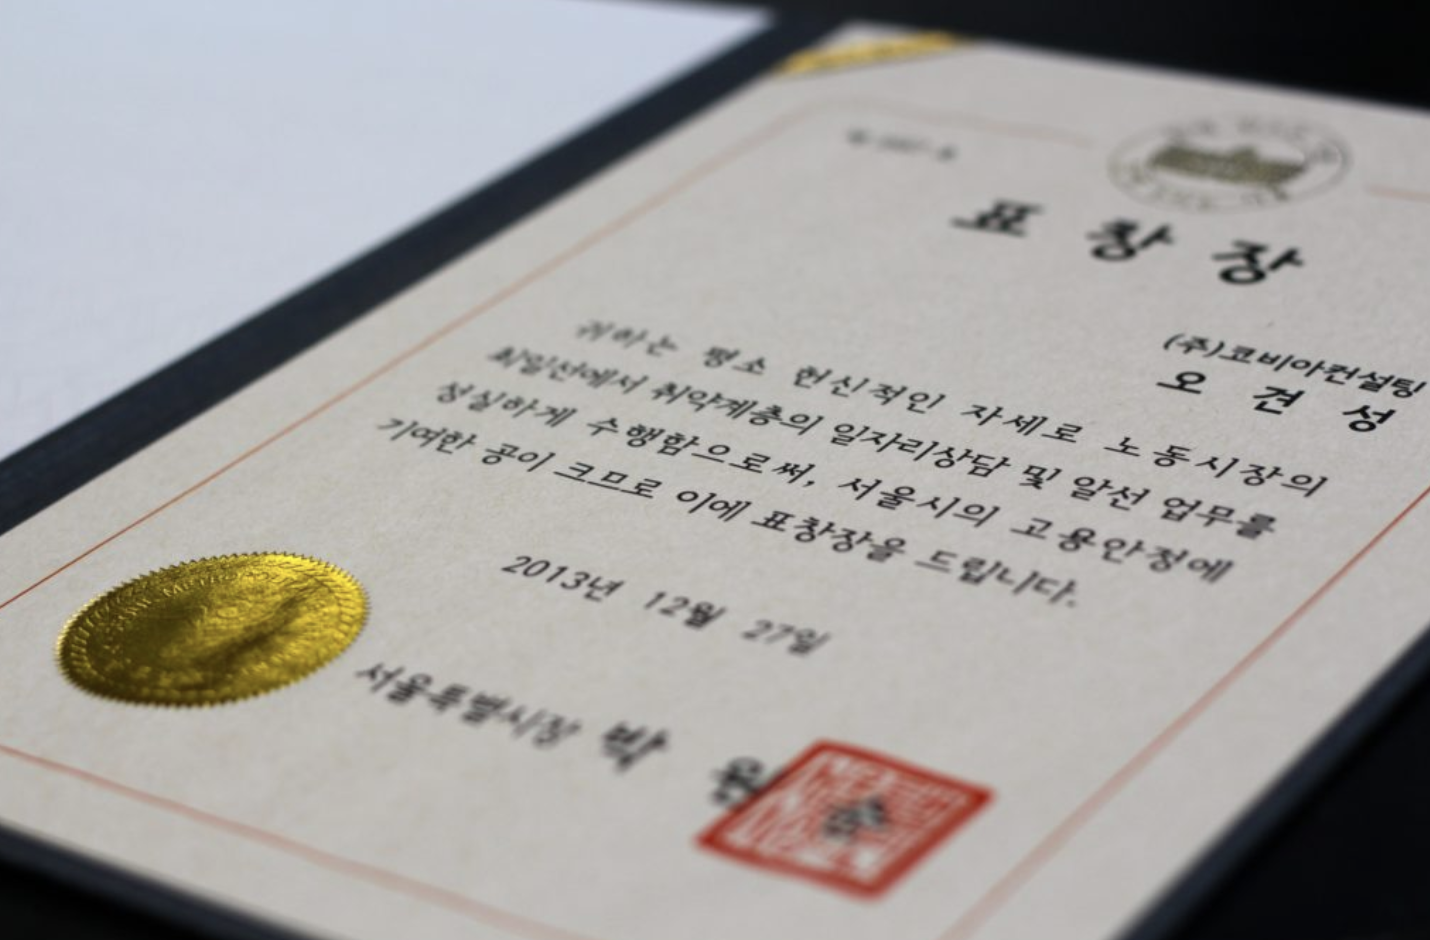 표 창 장
(주)코비아컨설팅
오 견 성
귀하는 평소 헌신적인 자세로 노동시장의
최일선에서 취약계층의 일자리상담 및 알선 업무를
성실하게 수행함으로써, 서울시의 고용안정에
기여한 공이 크므로 이에 표창장을 드립니다.
2013년 12월 27일
서울특별시장 박 원 순